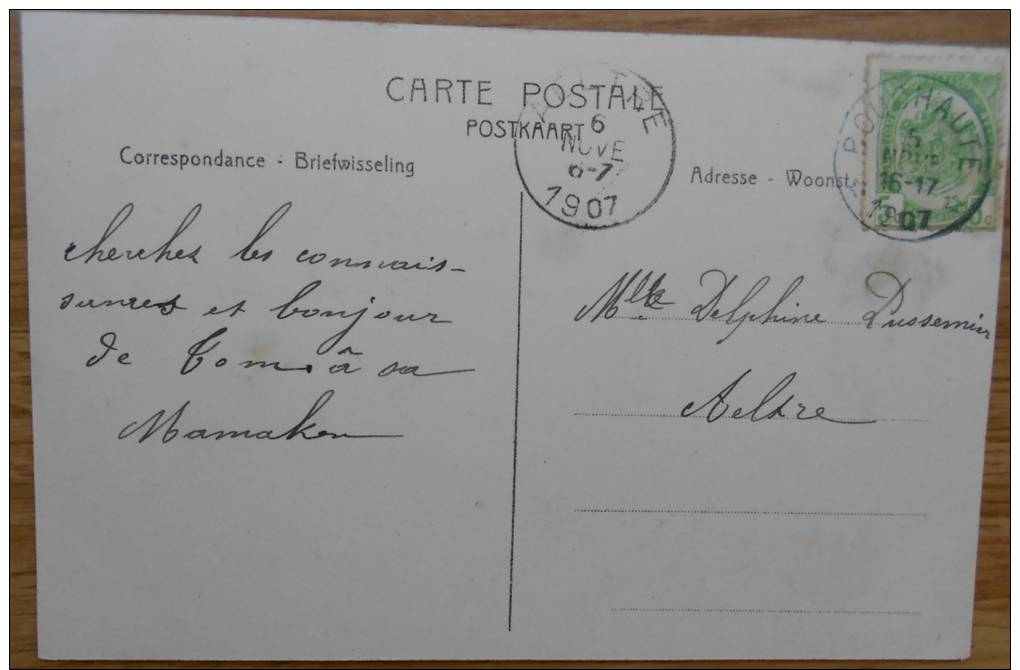 CARTE POSTALE
POSTKAART
Correspondance - Briefwisseling
Adresse - Woonst
6
NOVE
6-7
1907
HAUTE
5
16-17
1907
5
cherchez les connais-
sances et bonjour
de Tom à sa
Mamaken
Mlle Delphine Dussemier
Aeltre